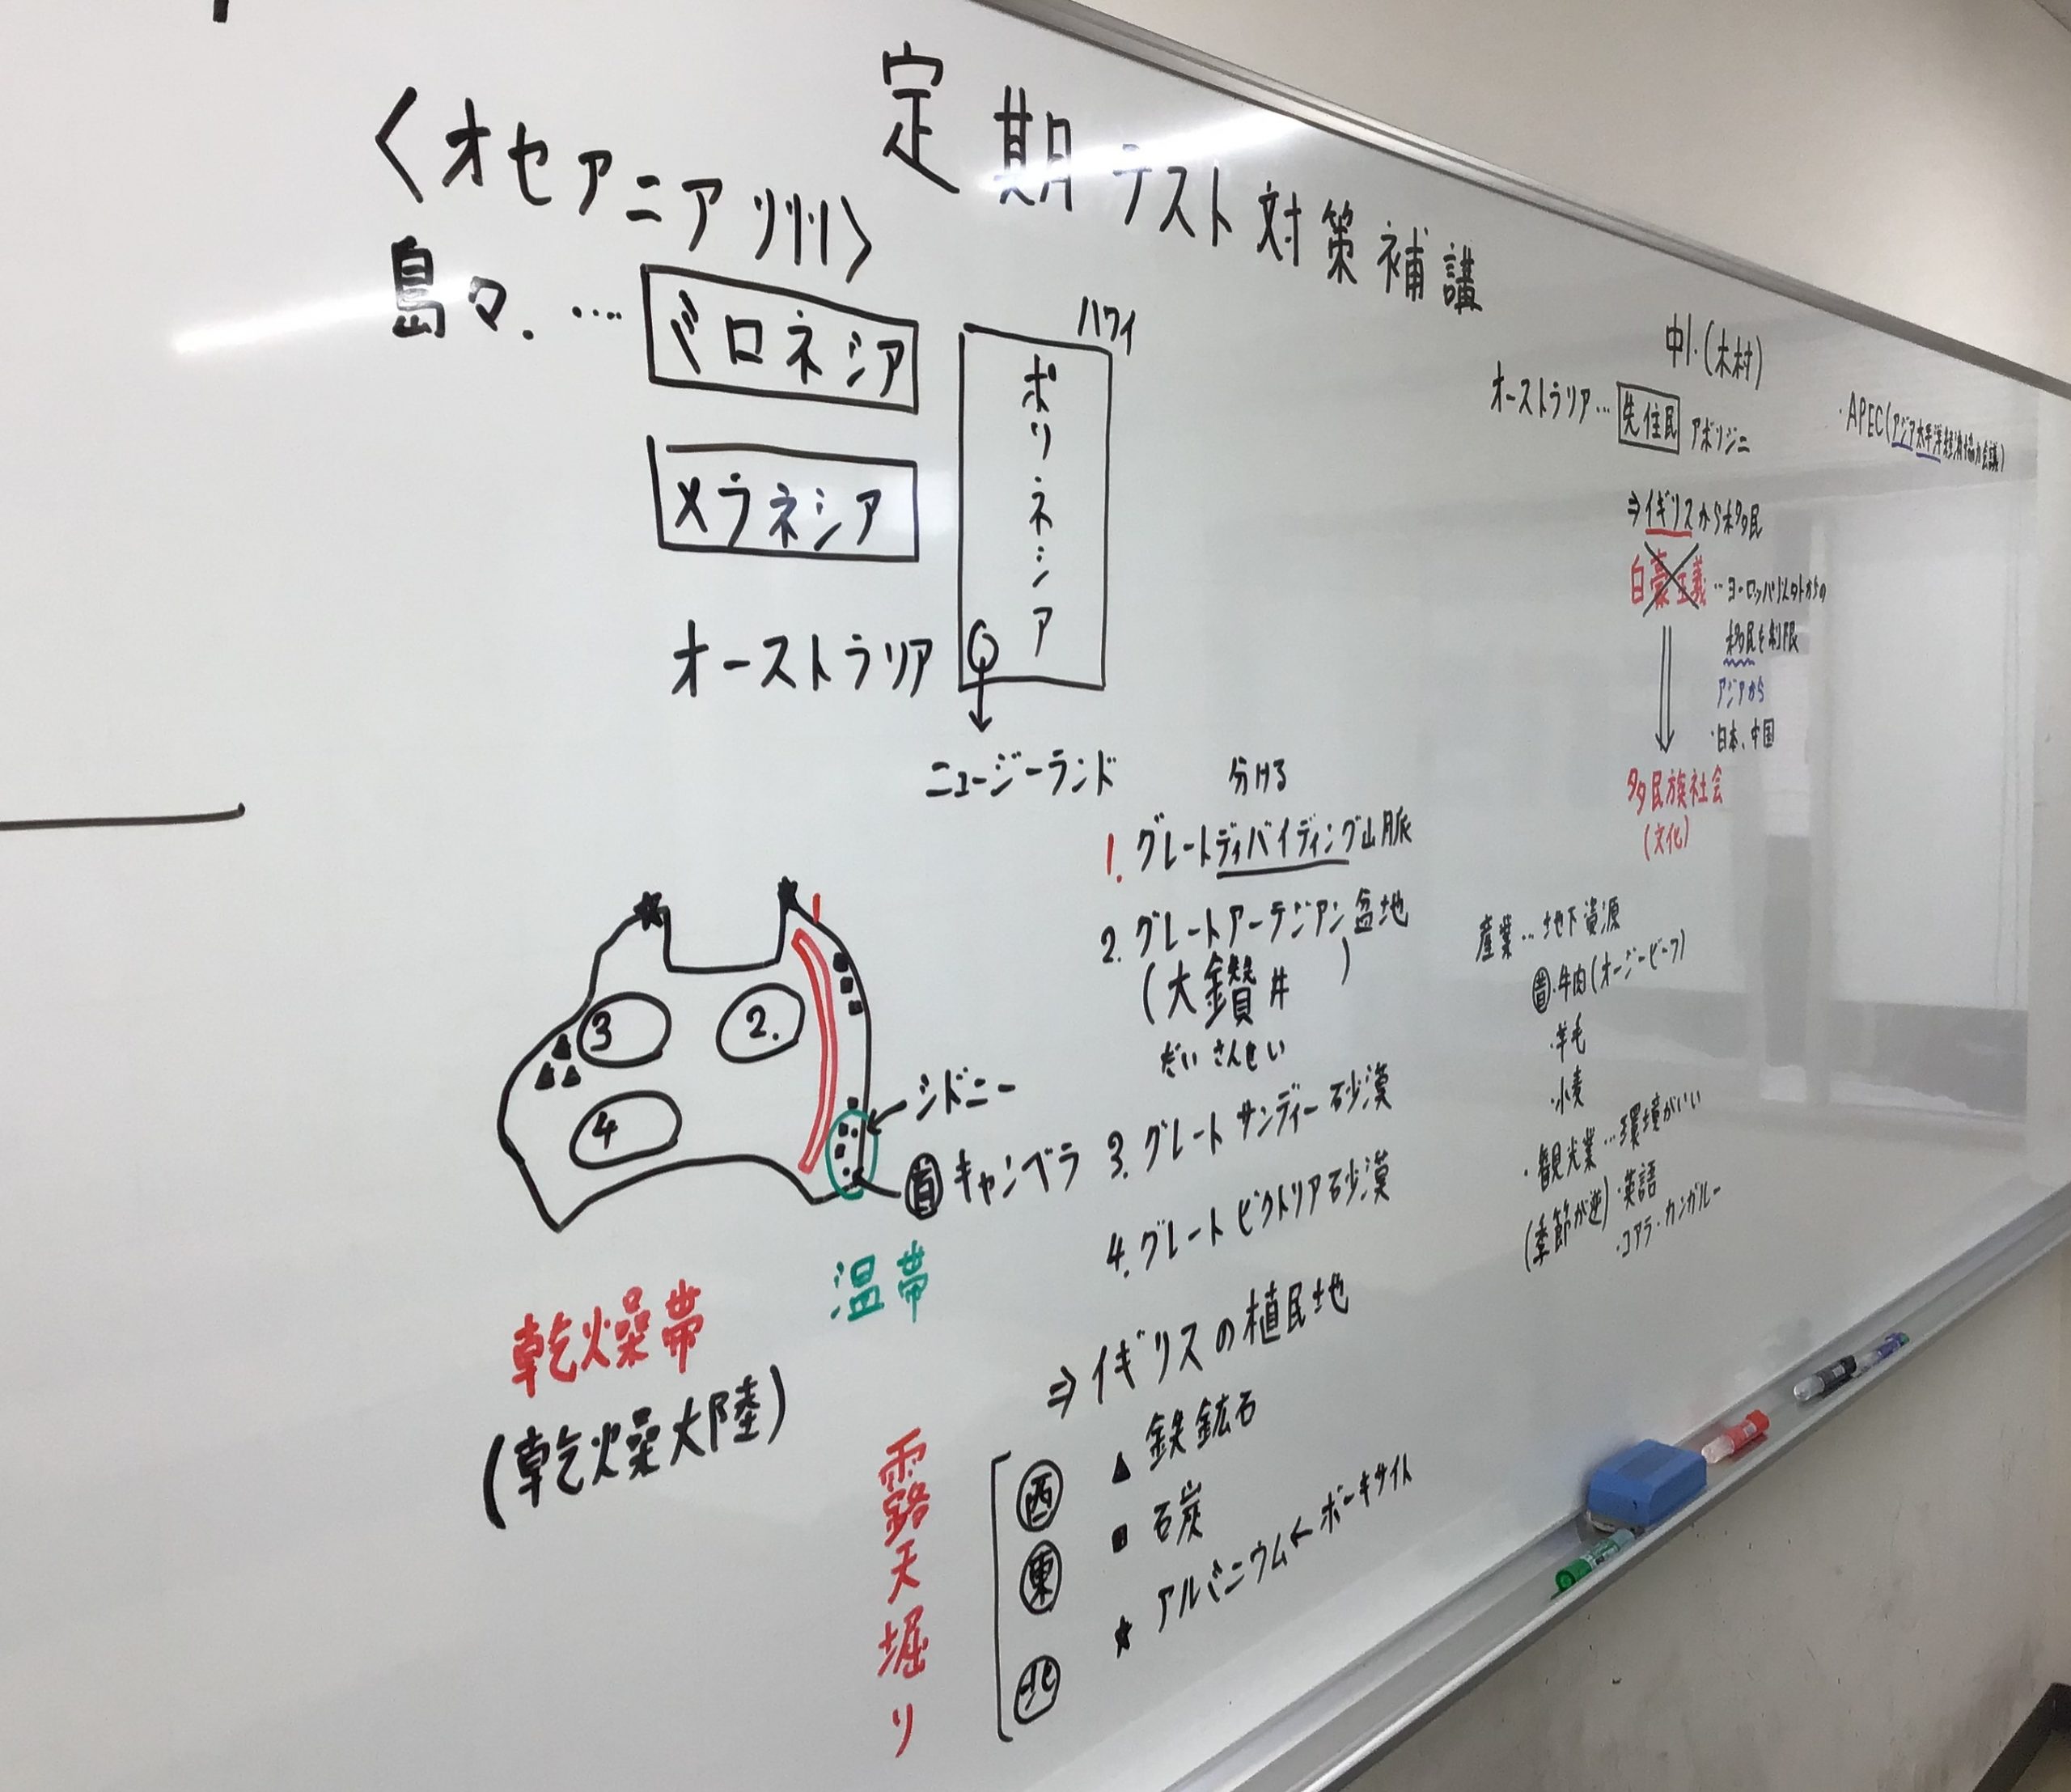 定期テスト対策補講
中1.(木村)
〈オセアニア州〉
島々.….
ミクロネシア
メラネシア
ハワイ
ポリネシア
オーストラリア
ニュージーランド
分ける
1. グレートディバイディング山脈
2. グレートアーテジアン盆地
(大鑽井 )
だいさんせい
3. グレートサンディー砂漠
4. グレートビクトリア砂漠
1
2.
3
4
シドニー
首 キャンベラ
温帯
乾燥帯
(乾燥大陸)
⇒イギリスの植民地
露天堀り
西 ▲ 鉄鉱石
東 ■ 石炭
北 ★ アルミニウム←ボーキサイト
オーストラリア…先住民 アボリジニ
⇒イギリスから移民
白豪主義…ヨーロッパ以外からの
移民を制限
アジアから
・日本、中国
多民族社会
(文化)
産業…地下資源
・牛肉(オージービーフ)
・羊毛
・小麦
・観光業…環境がいい
(季節が逆)・英語
・コアラ・カンガルー
・APEC(アジア太平洋経済協力会議)